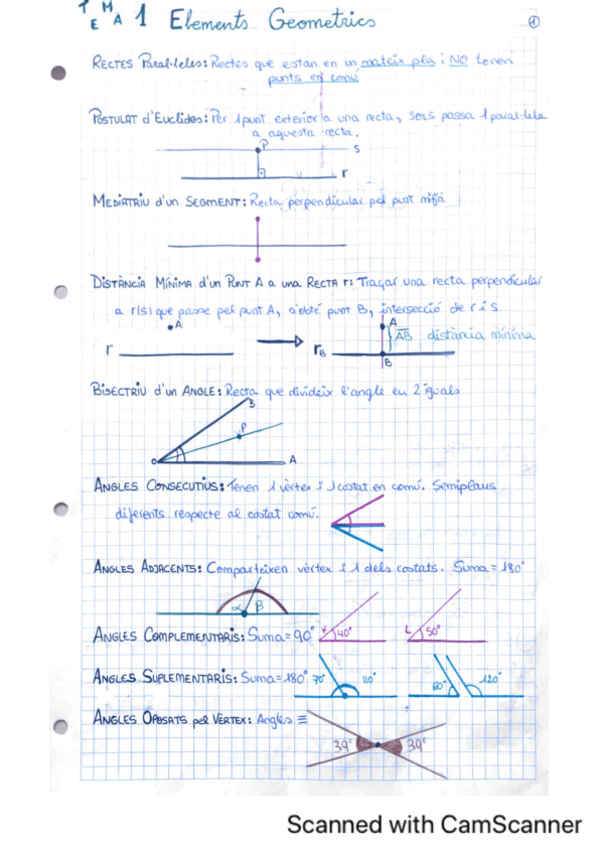 TEMA 1 Elements Geometrics
1
RECTES Paral·leles: Rectes que estan en un mateix pla i NO tenen
punts en comú
POSTULAT d'Euclides: Per 1 punt exterior a una recta, sols passa 1 paral·lela
a aquesta recta.
P
s
r
MEDIATRIU d'un SEGMENT: Recta perpendicular pel punt mitjà
DISTÀNCIA MÍNIMA d'un PUNT A a una RECTA r: Traçar una recta perpendicular
a r(s) que passe pel punt A, s'obté punt B, intersecció de r i s.
A
A
AB distància mínima
r
r
B
B
BISECTRIU d'un ANGLE: Recta que divideix l'angle en 2 iguals
B
P
O
A
ANGLES CONSECUTIUS: Tenen 1 vèrtex i 1 costat en comú. Semiplans
diferents respecte al costat comú.
ANGLES ADJACENTS: Comparteixen vèrtex i 1 dels costats. Suma = 180°
α β
ANGLES COMPLEMENTARIS: Suma = 90° 40° 50°
ANGLES SUPLEMENTARIS: Suma = 180° 70° 110° 60° 120°
ANGLES OPOSATS pel VÈRTEX: Angles ≡
39° 39°
Scanned with CamScanner